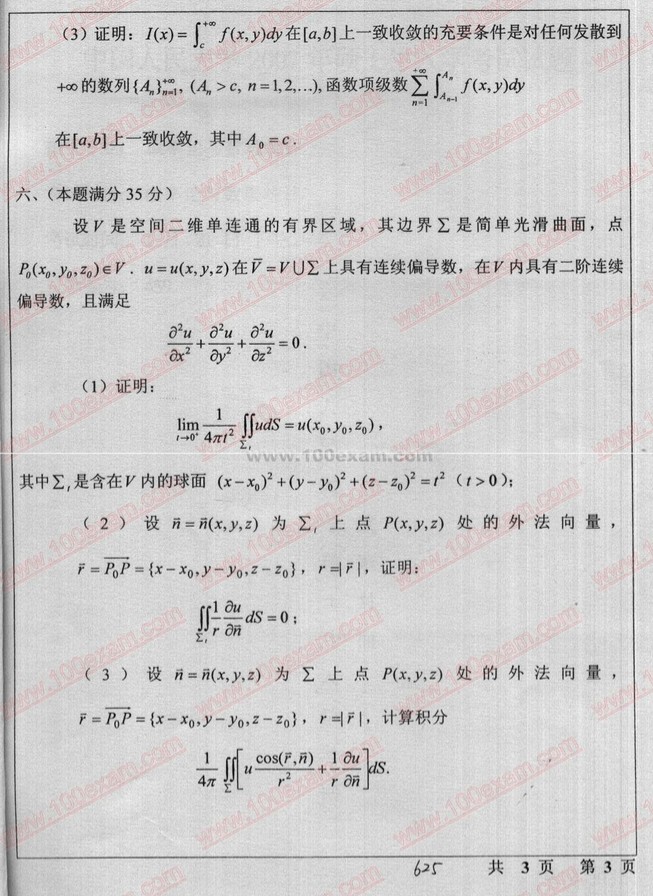 （3）证明：I(x)=∫_c^{+∞} f(x,y)dy 在[a,b]上一致收敛的充要条件是对任何发散到
+∞的数列{A_n}_{n=1}^{+∞}, (A_n>c, n=1,2,…), 函数项级数 ∑_{n=1}^{+∞} ∫_{A_{n-1}}^{A_n} f(x,y)dy
在[a,b]上一致收敛，其中 A_0=c.
六、（本题满分 35 分）
设 V 是空间二维单连通的有界区域，其边界 Σ 是简单光滑曲面，点
P_0(x_0,y_0,z_0)∈V. u=u(x,y,z)在V̄=V∪Σ上具有连续偏导数，在V内具有二阶连续
偏导数，且满足
∂²u/∂x²+∂²u/∂y²+∂²u/∂z²=0.
（1）证明：
lim_{t→0⁺} 1/(4πt²) ∬_{Σ_t} udS=u(x_0,y_0,z_0)，
www.100exam.com
其中Σ_t是含在V内的球面 (x-x_0)²+(y-y_0)²+(z-z_0)²=t²（t>0）；
（2）设 n⃗=n⃗(x,y,z) 为 Σ_t 上点 P(x,y,z) 处的外法向量，
r⃗=P_0P⃗={x-x_0,y-y_0,z-z_0}，r=|r⃗|，证明：
∬_{Σ_t} 1/r ∂u/∂n⃗ dS=0；
（3）设 n⃗=n⃗(x,y,z) 为 Σ 上点 P(x,y,z) 处的外法向量，
r⃗=P_0P⃗={x-x_0,y-y_0,z-z_0}，r=|r⃗|，计算积分
1/(4π) ∬_Σ [u cos(r⃗,n⃗)/r² + 1/r ∂u/∂n⃗]dS.
625 共 3 页 第 3 页